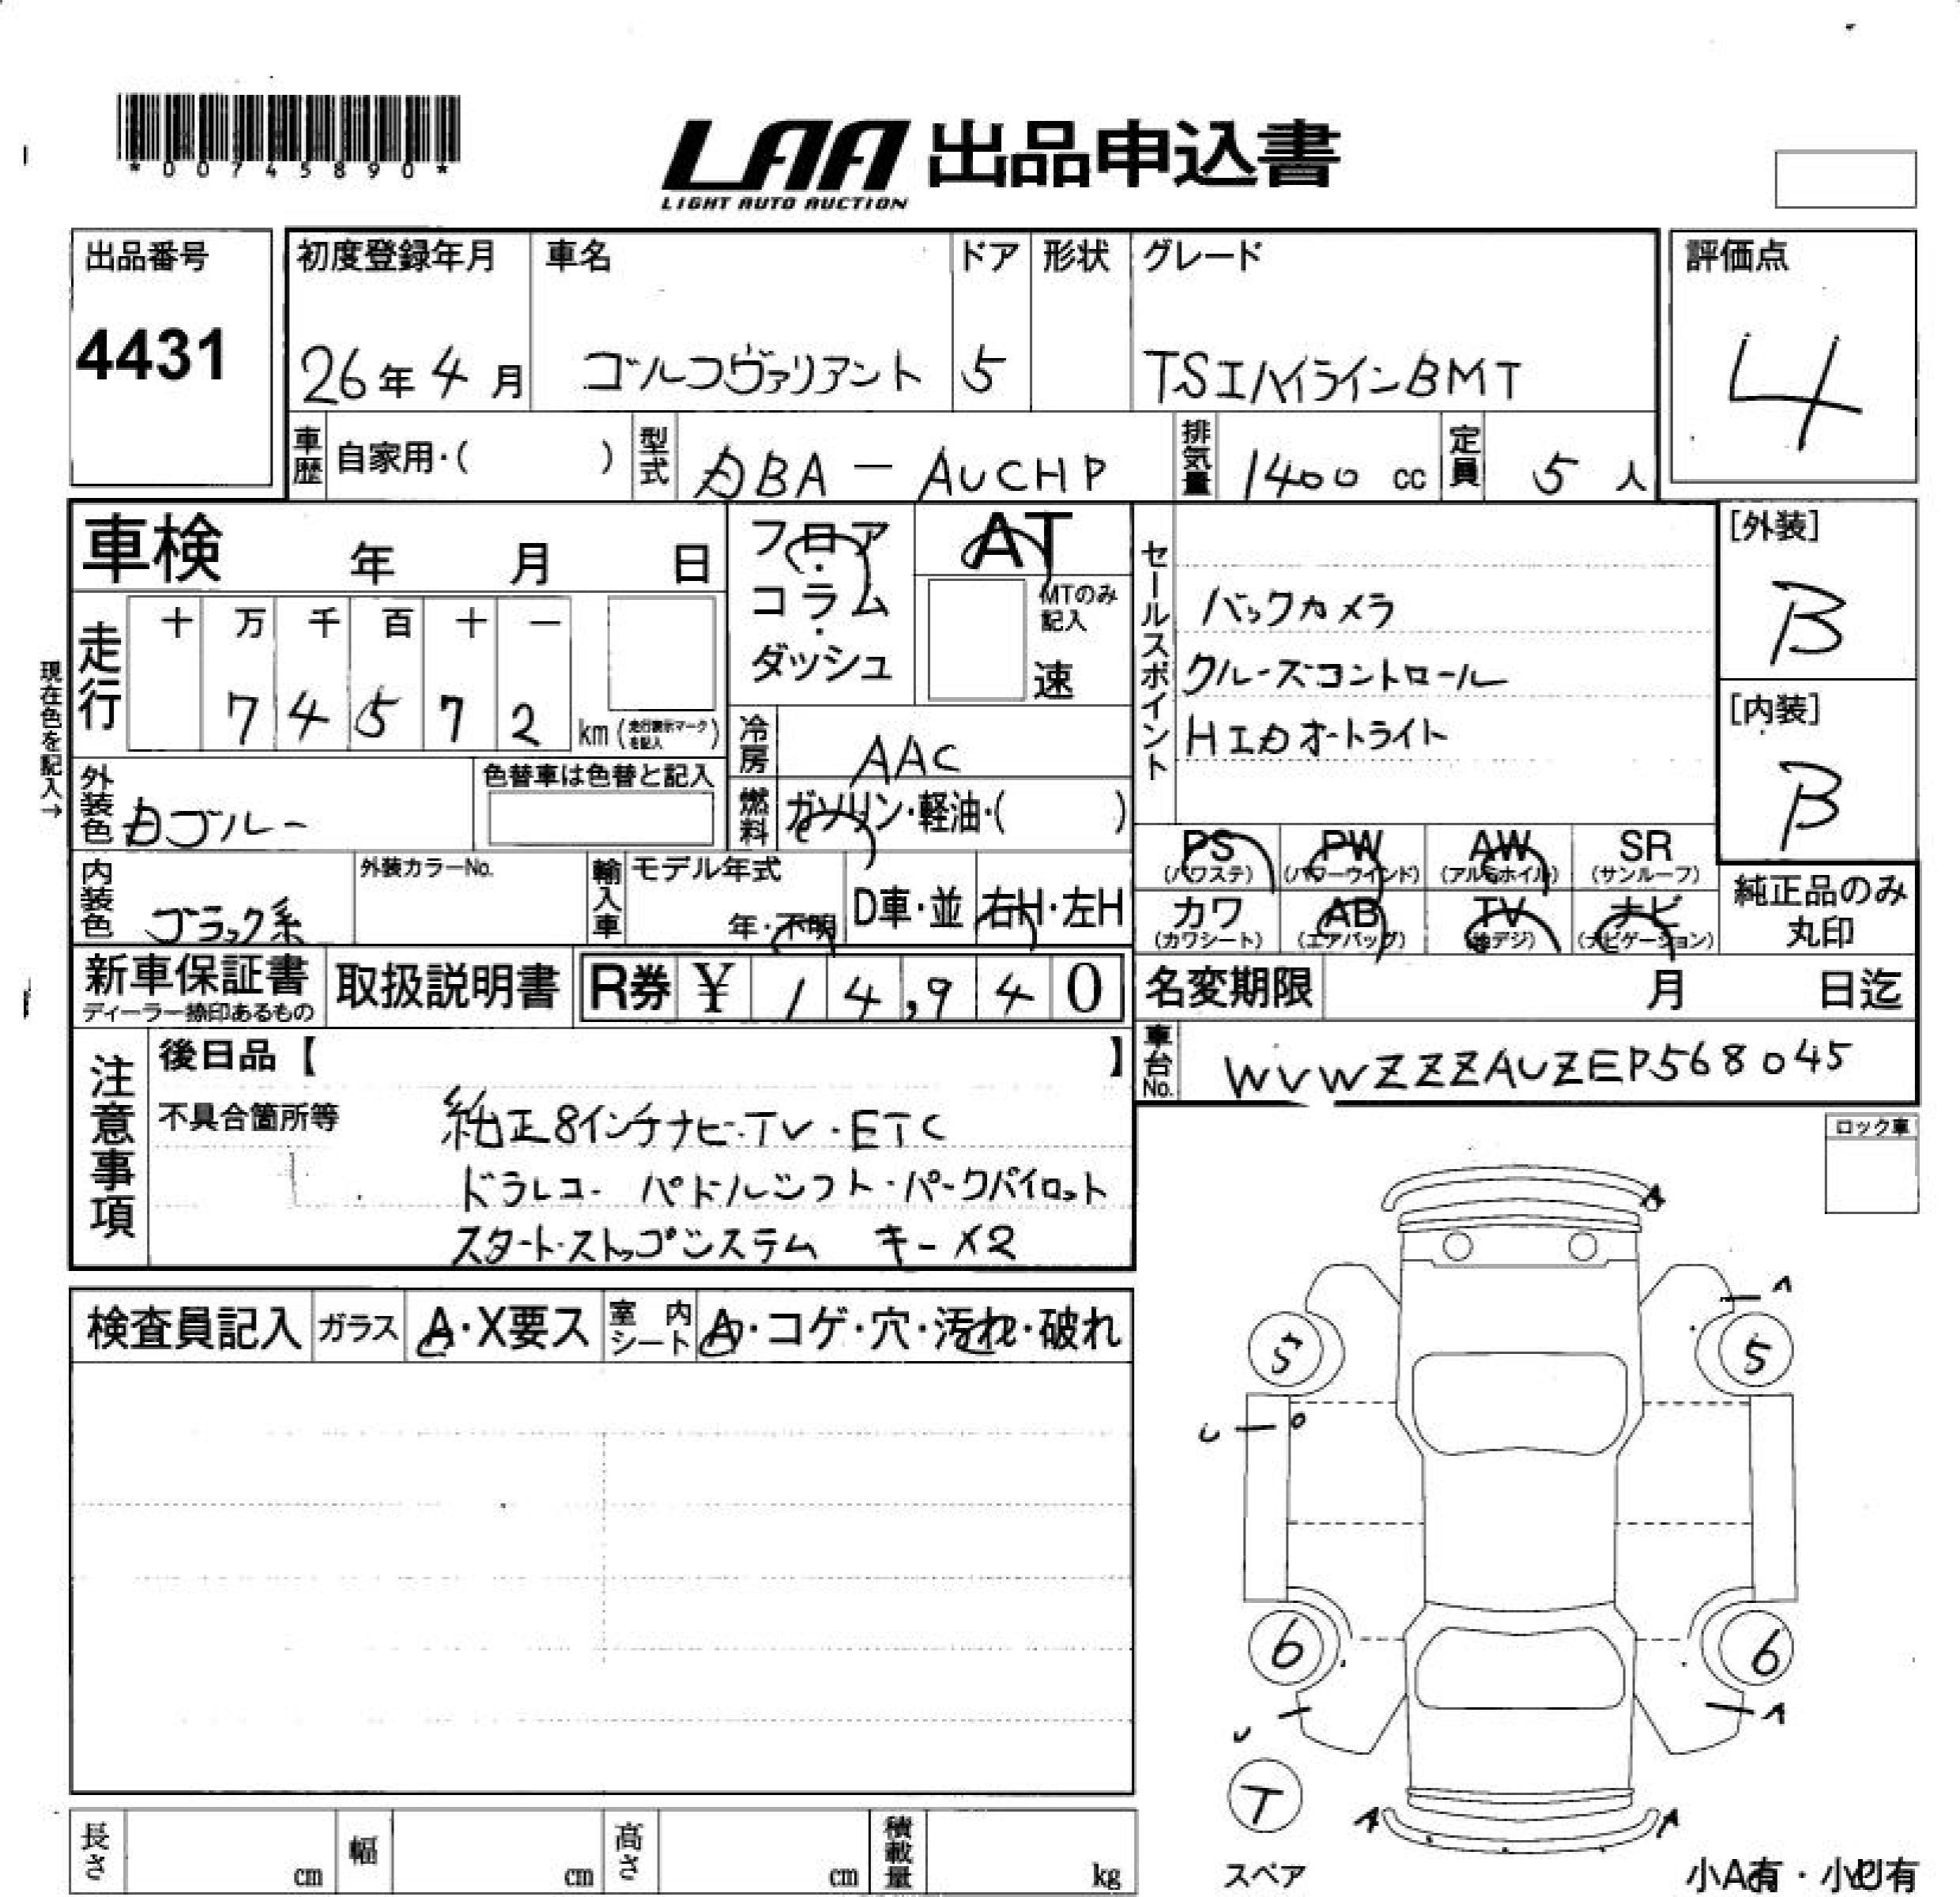 *00745890*
LAA 出品申込書
LIGHT AUTO AUCTION
出品番号
4431
初度登録年月
26年4月
車名
ゴルフヴァリアント
ドア
5
形状
グレード
TSIハイラインBMT
評価点
4
車歴 自家用・( )
型式 DBA-AUCHP
排気量 1400 cc
定員 5 人
車検 年 月 日
フロア・コラム・ダッシュ
AT
MTのみ記入
速
セールスポイント
バックカメラ
クルーズコントロール
HIDオートライト
[外装]
B
[内装]
B
現在色を記入→
走行
十 万 千 百 十 一
7 4 5 7 2
km (走行表示マークを記入)
冷房 AAC
燃料 ガソリン・軽油・( )
外装色 Dブルー
色替車は色替と記入
内装色 ブラック系
外装カラーNo.
輸入車
モデル年式
年・不明
D車・並
右H・左H
PS (パワステ)
PW (パワーウインド)
AW (アルミホイル)
SR (サンルーフ)
カワ (カワシート)
AB (エアバッグ)
TV (地デジ)
ナビ (ナビゲーション)
純正品のみ丸印
新車保証書
ディーラー捺印あるもの
取扱説明書
R券 ¥ 14,940
名変期限 月 日迄
車台No. WVWZZZAUZEP568045
注意事項
後日品【 】
不具合箇所等
純正8インチナビ・TV・ETC
ドラレコー パドルシフト・パークパイロット
スタート・ストップシステム キー×2
ロック車
検査員記入
ガラス A・X要ス
室内シート A・コゲ・穴・汚れ・破れ
A
A
5
5
U
6
6
A
T
A
A
スペア
小A有・小U有
長さ cm
幅 cm
高さ cm
積載量 kg